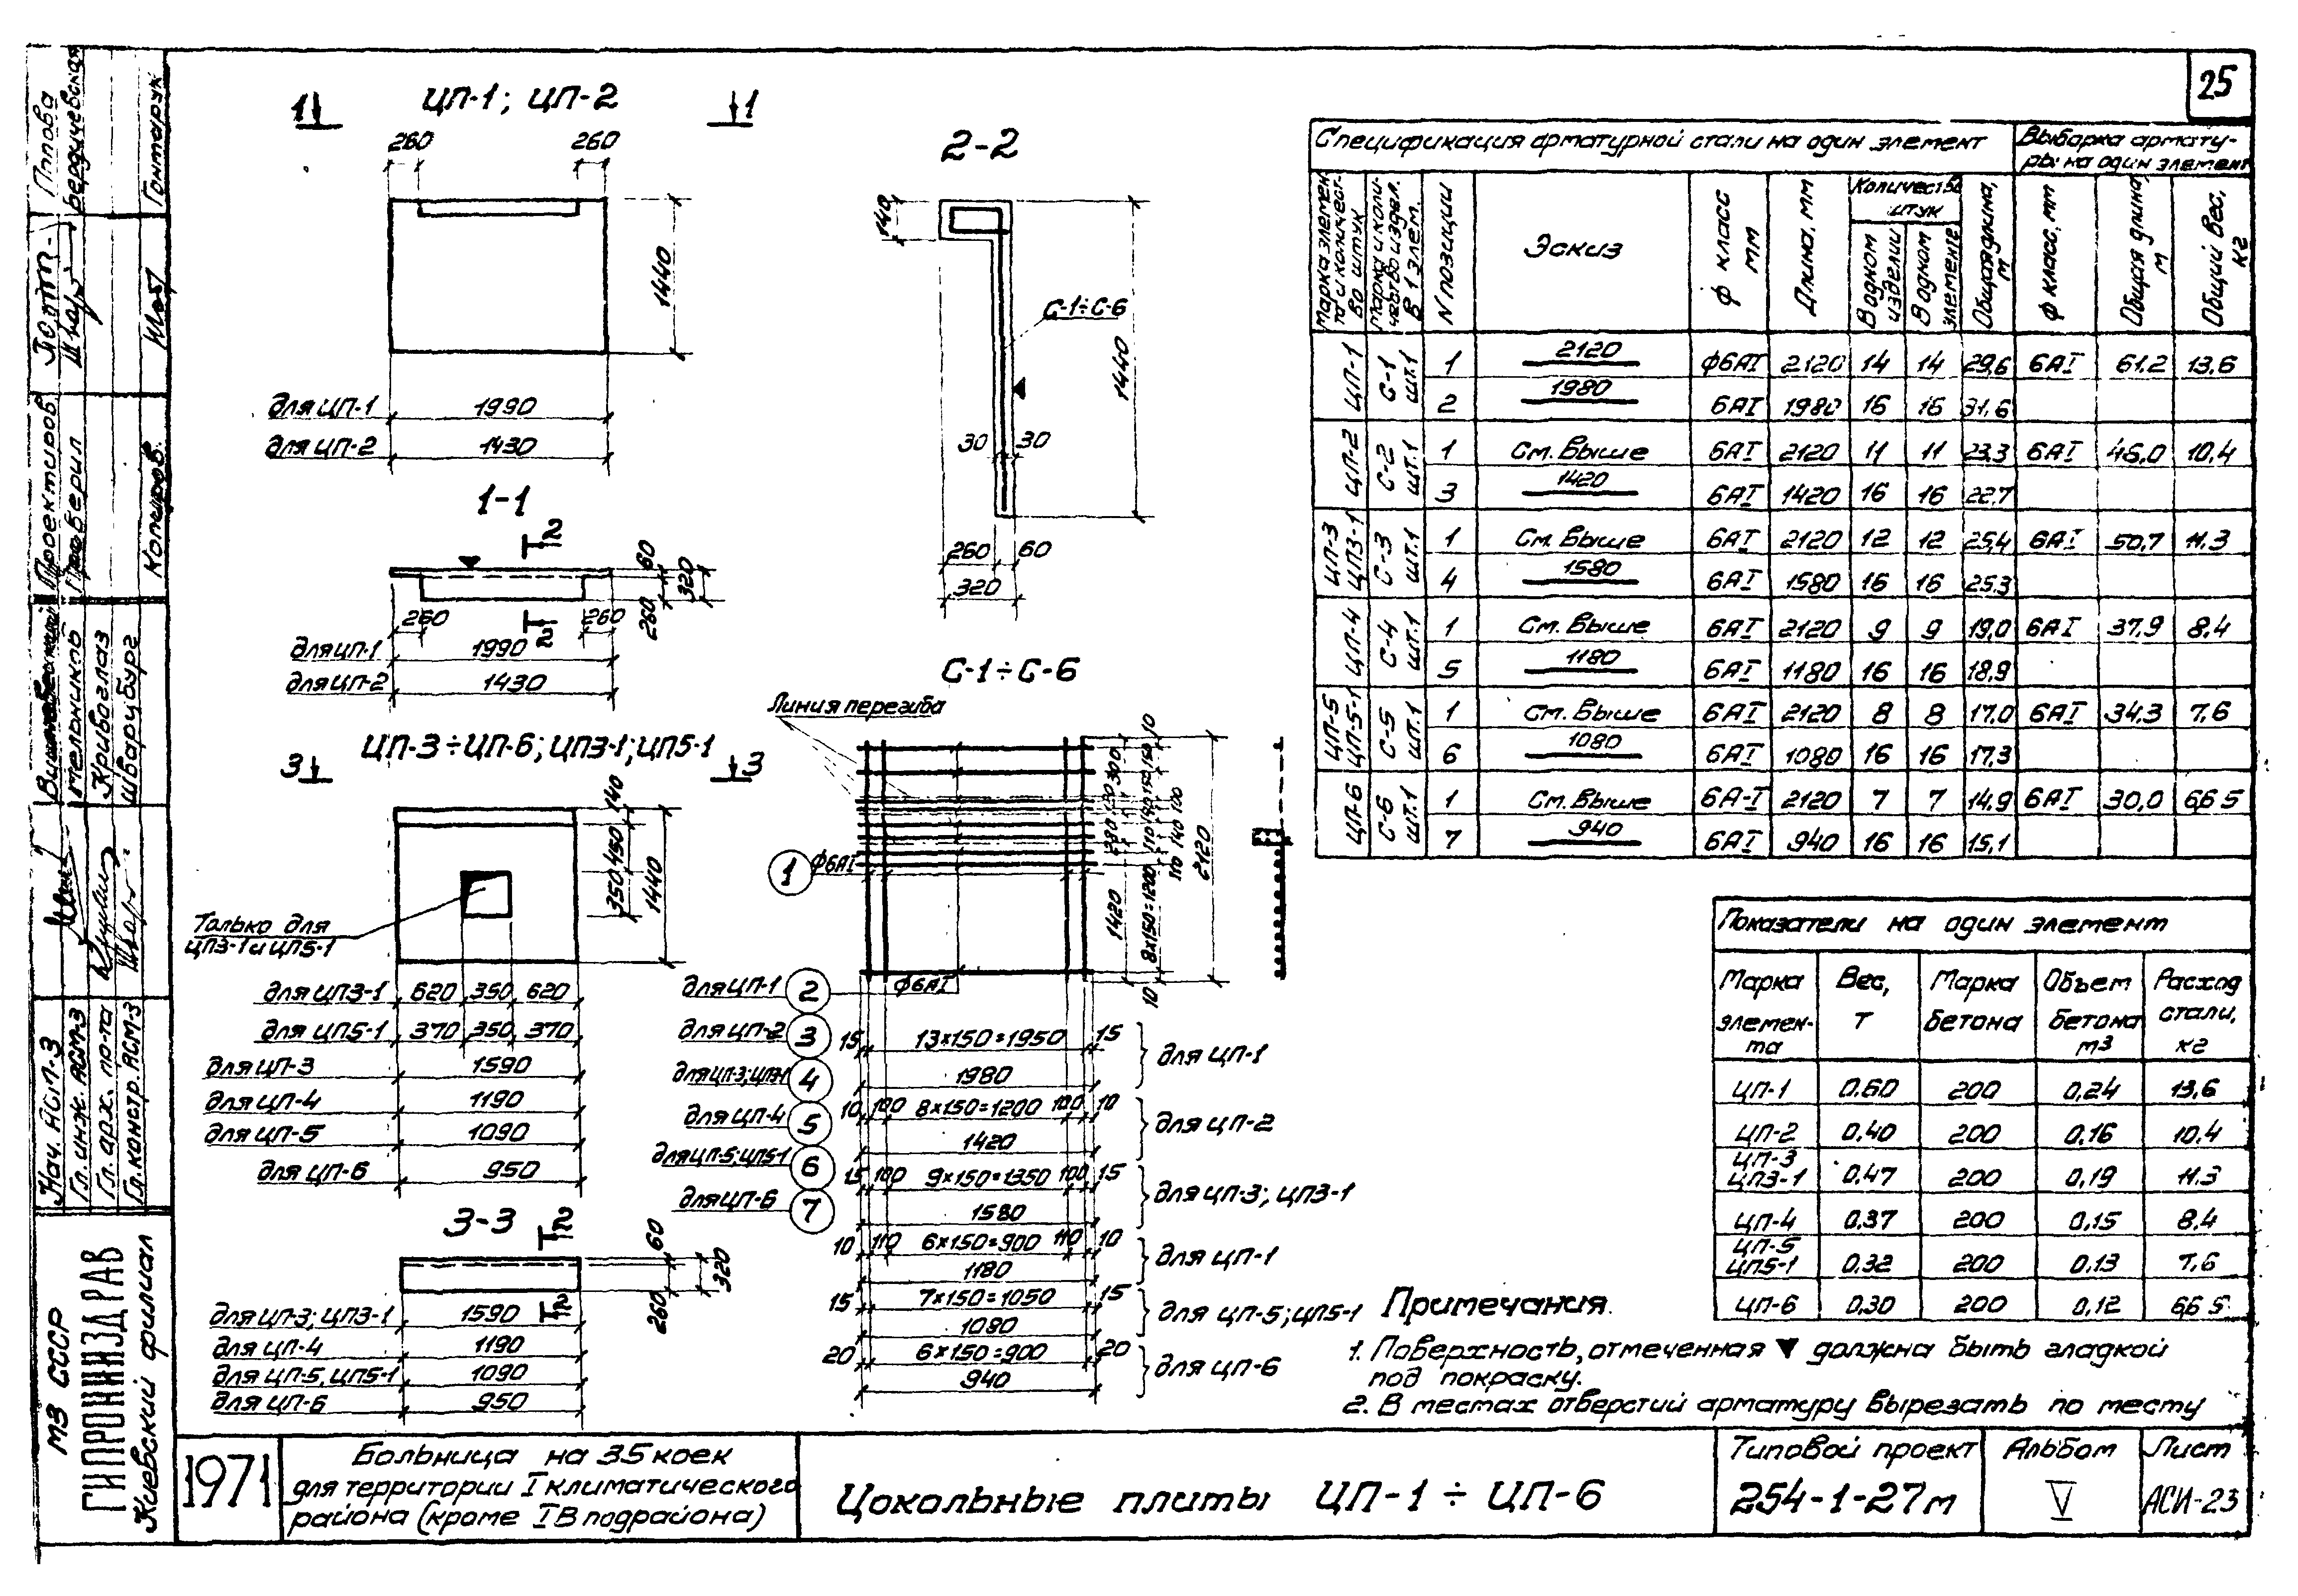 25
ЦП-1; ЦП-2
1 1
260 260
1440
для ЦП-1 1990
для ЦП-2 1430
1-1
2
60
320
260
260 260
2
для ЦП-1 1990
для ЦП-2 1430
ЦП-3÷ЦП-6; ЦП3-1; ЦП5-1
3 3
140
450
350
1440
Только для
ЦП3-1 и ЦП5-1
для ЦП3-1 620 350 620
для ЦП5-1 370 350 370
для ЦП-3 1590
для ЦП-4 1190
для ЦП-5 1090
для ЦП-6 950
3-3
2
60
320
260
2
для ЦП-3; ЦП3-1 1590
для ЦП-4 1190
для ЦП-5, ЦП5-1 1090
для ЦП-6 950
2-2
140
1440
С-1÷С-6
30 30
260 60
320
С-1÷С-6
Линия перегиба
1 ф6АI
10
300
1420
8х150=1200
2120
10
ф6АI
для ЦП-1 2
для ЦП-2 3
для ЦП-3; ЦП3-1 4
для ЦП-4 5
для ЦП-5; ЦП5-1 6
для ЦП-6 7
15 13х150=1950 15
1980
для ЦП-1
10 100 8х150=1200 100 10
1420
для ЦП-2
15 100 9х150=1350 100 15
1580
для ЦП-3; ЦП3-1
10 110 6х150=900 110 10
1180
для ЦП-1
15 7х150=1050 15
1080
для ЦП-5; ЦП5-1
20 6х150=900 20
940
для ЦП-6
Спецификация арматурной стали на один элемент
Выборка армату-
ры на один элемент
Марка элемен-
та и количест-
во штук
Марка и коли-
чество издел.
в 1 элем.
N позиции
Эскиз
ф класс
мм
Длина, мм
Количество
штук
В одном
изделии
В одном
элементе
Общая длина,
м
ф класс, мм
Общая длина,
м
Общий вес,
кг
ЦП-1 С-1 шт.1 1 2120 ф6АI 2120 14 14 29,6 6АI 61,2 13,6
2 1980 6АI 1980 16 16 31,6
ЦП-2 С-2 шт.1 1 См. выше 6АI 2120 11 11 23,3 6АI 46,0 10,4
3 1420 6АI 1420 16 16 22,7
ЦП-3 ЦП3-1 С-3 шт.1 1 См. выше 6АI 2120 12 12 25,4 6АI 50,7 11,3
4 1580 6АI 1580 16 16 25,3
ЦП-4 С-4 шт.1 1 См. выше 6АI 2120 9 9 19,0 6АI 37,9 8,4
5 1180 6АI 1180 16 16 18,9
ЦП-5 ЦП-5-1 С-5 шт.1 1 См. выше 6АI 2120 8 8 17,0 6АI 34,3 7,6
6 1080 6АI 1080 16 16 17,3
ЦП-6 С-6 шт.1 1 См. выше 6А-I 2120 7 7 14,9 6АI 30,0 6,65
7 940 6АI 940 16 16 15,1
Показатели на один элемент
Марка
элемен-
та
Вес,
Т
Марка
бетона
Объем
бетона
м3
Расход
стали,
кг
ЦП-1 0,60 200 0,24 13,6
ЦП-2 0,40 200 0,16 10,4
ЦП-3
ЦП3-1 0,47 200 0,19 11.3
ЦП-4 0,37 200 0,15 8,4
ЦП-5
ЦП5-1 0,32 200 0,13 7,6
ЦП-6 0,30 200 0,12 6,65
Примечания.
1. Поверхность, отмеченная ▼ должна быть гладкой
под покраску.
2. В местах отверстий арматуру вырезать по месту
1971
Больница на 35 коек
для территории I климатического
района (кроме IВ подрайона)
Цокольные плиты ЦП-1 ÷ ЦП-6
Типовой проект
254-1-27м
Альбом
V
Лист
АСИ-23
МЗ СССР
ГИПРОНИИЗДРАВ
Киевский филиал
Нач. АСП-3
Гл. инж. АСМ-3
Гл. арх. пр-та
Гл. констр. АСМ-3
Мельников
Кривоглаз
Шварцбург
Проектиров.
Проверил
Копиров.
Попова
Бердичевская
Гонтарук